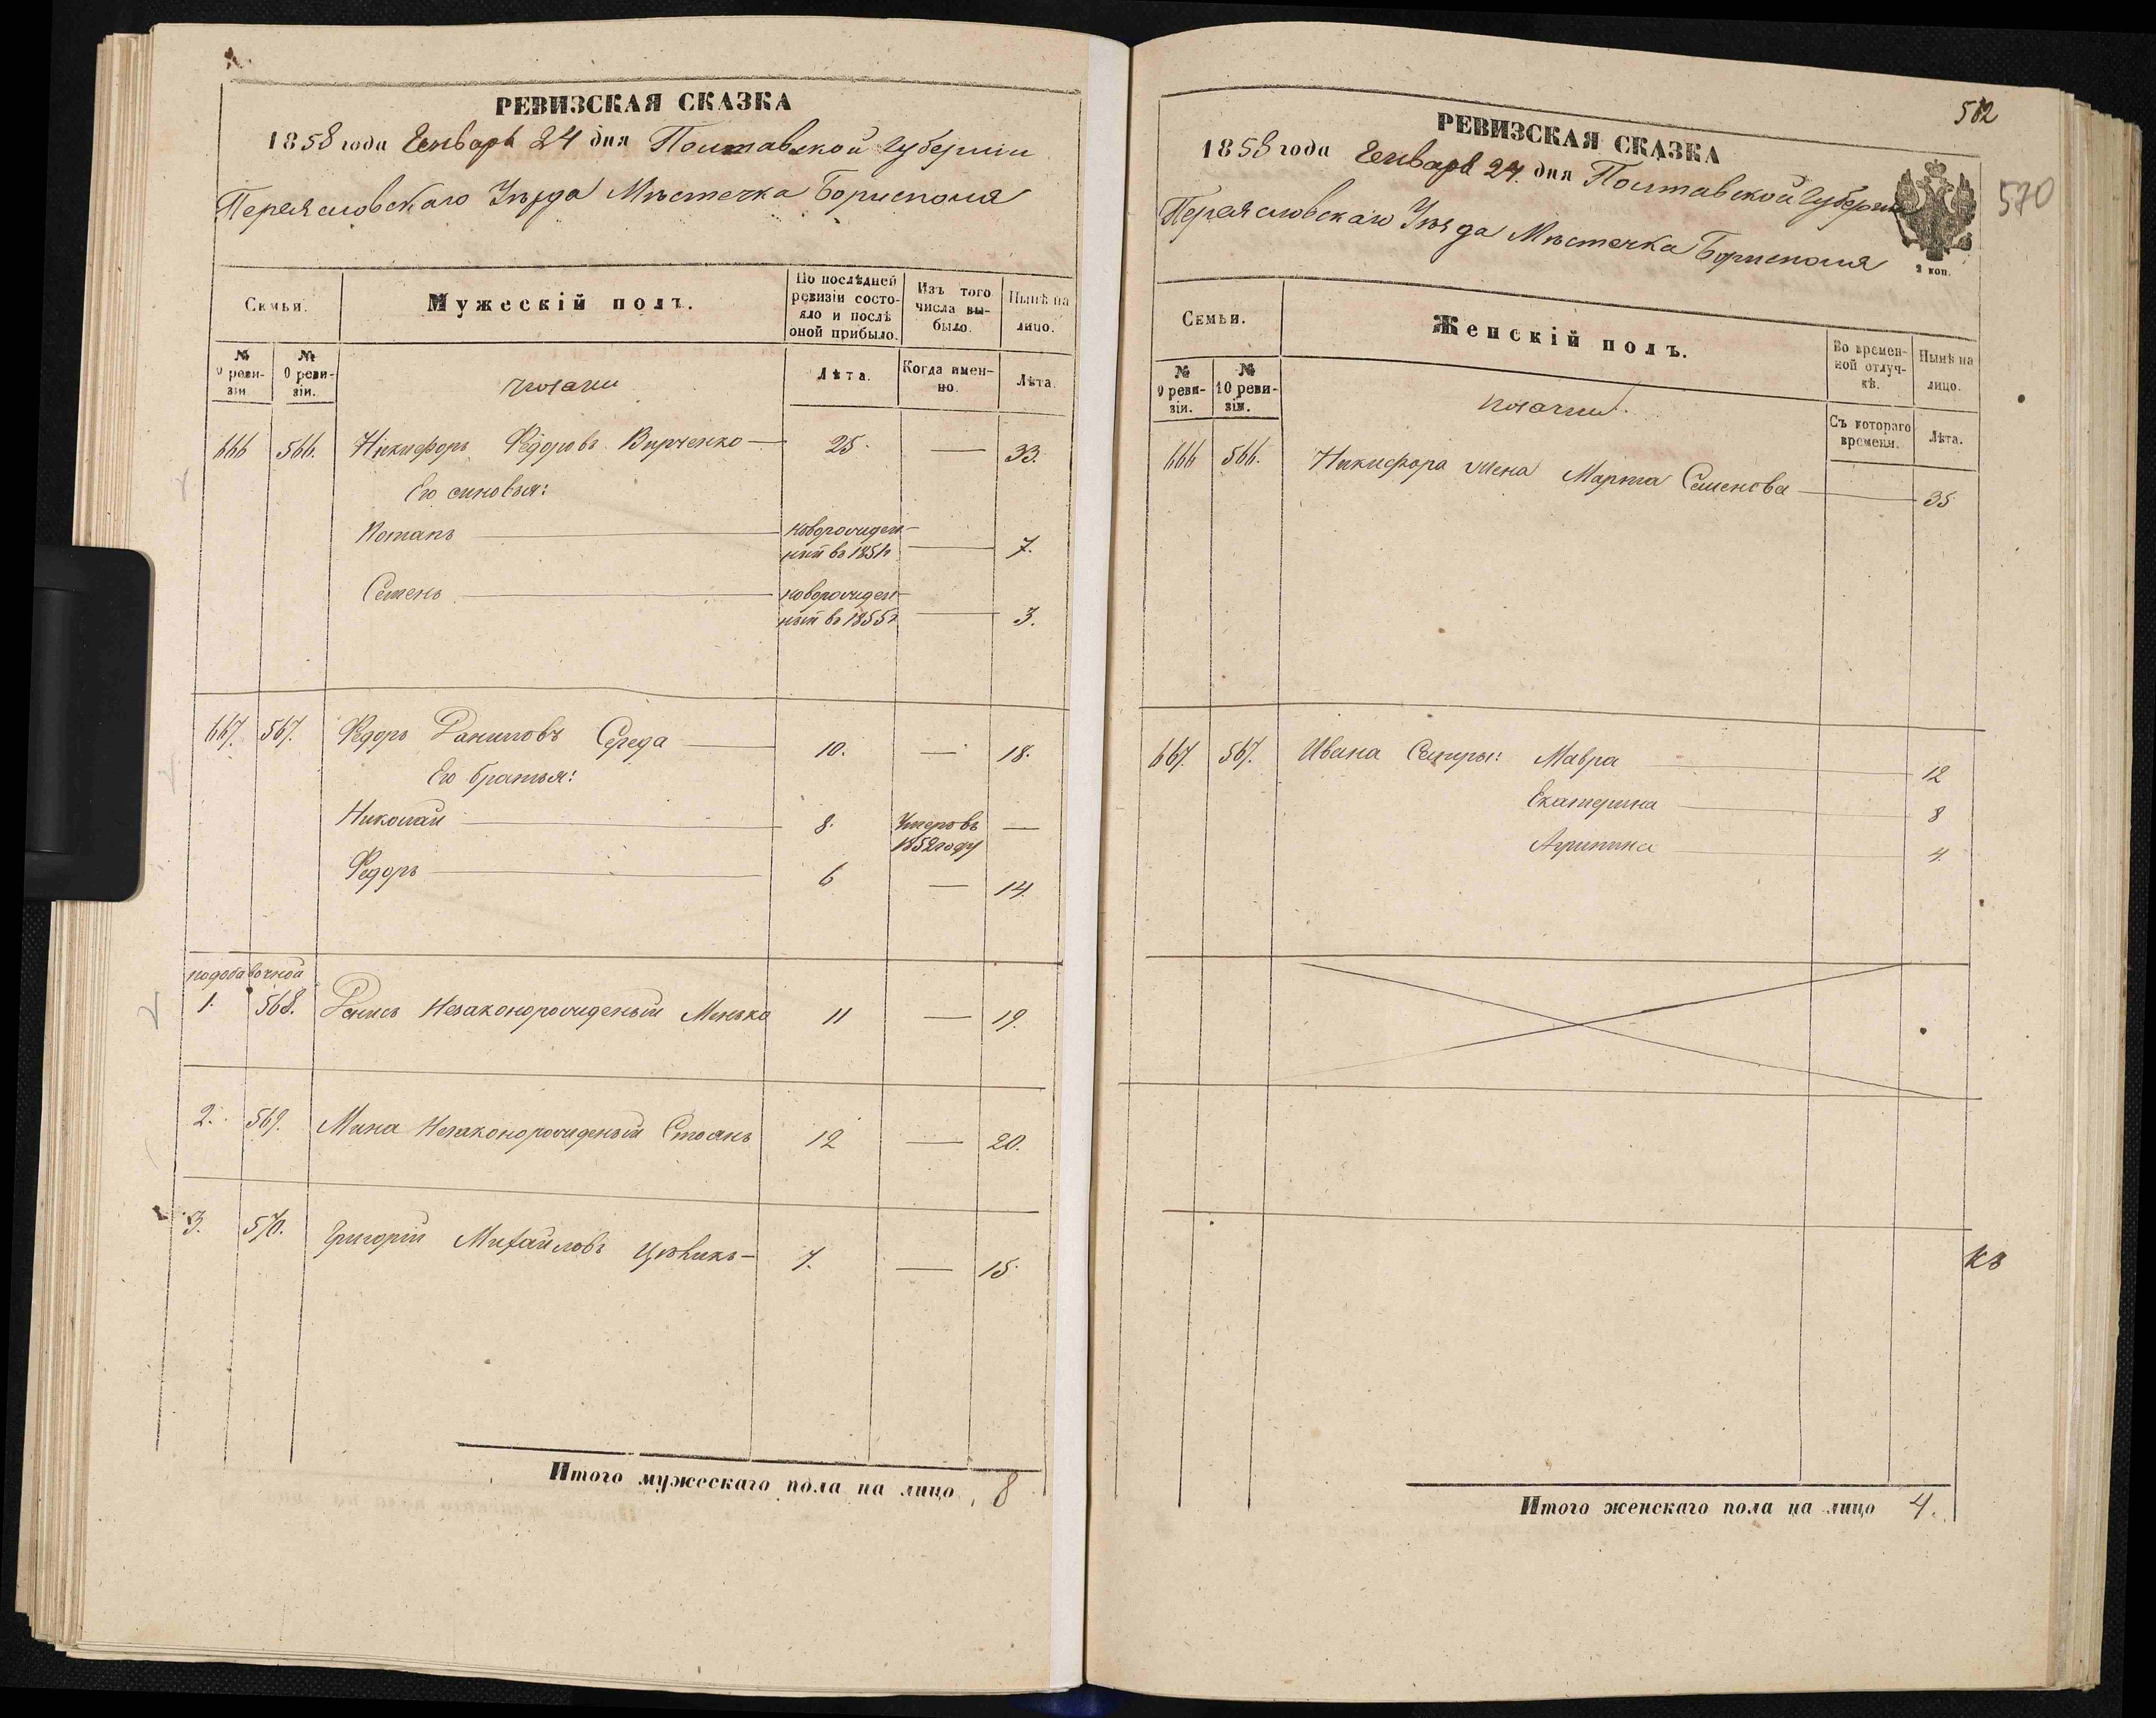 РЕВИЗСКАЯ СКАЗКА
1858 года Генваря 24 дня Полтавской Губернии
Переясловскаго Уѣзда Мѣстечка Борисполя
Семьи.
Мужескій полъ.
По послѣдней ревизіи состояло и послѣ оной прибыло.
Изъ того числа выбыло.
Нынѣ на лицо.
№ 9 ревизіи.
№ 10 ревизіи.
козаки
Лѣта.
Когда именно.
Лѣта.
666 566. Никифоръ Федоровъ Вирченко — 25. — 33.
Его сыновья:
Потапъ — новорожденный въ 1851 г — 7.
Семенъ — новорожденный въ 1855 г — 3.
667. 567. Федоръ Даниловъ Середа — 10. — 18.
Его братья:
Николай — 8. Умеръ въ 1852 году —
Федоръ — 6 — 14.
подобавочной
1. 568. Денисъ Незаконорожденый Менько 11 — 19.
2. 569. Мина Незаконорожденый Стоянъ 12 — 20.
3. 570. Григорій Михайловъ — 7. — 15.
Итого мужескаго пола на лицо 8
512
570
РЕВИЗСКАЯ СКАЗКА
1858 года Генваря 24. дня Полтавской Губерніи
Переясловскаго Уѣзда Мѣстечка Борисполя
2 коп.
Семьи.
Женскій полъ.
Во временной отлучкѣ.
Нынѣ на лицо.
№ 9 ревизіи.
№ 10 ревизіи.
козачки.
Съ котораго времени.
Лѣта.
666 566. Никифора жена Марта Семенова — 35
667. 567. Ивана Сестры: Мавра — 12
Екатерина — 8
Агрипина — 4.
Итого женскаго пола на лицо 4.